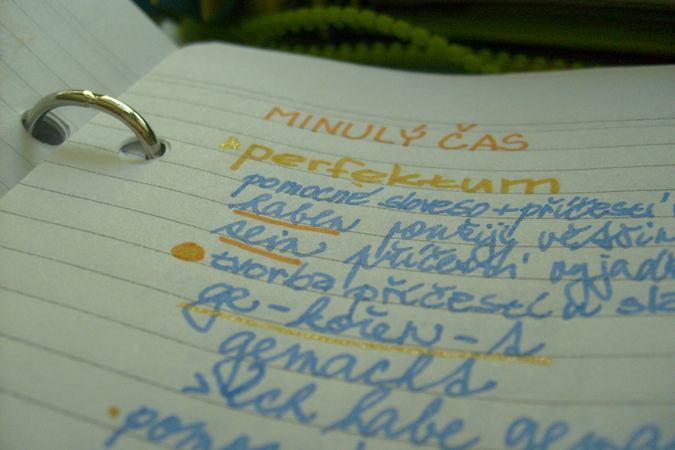 MINULÝ ČAS
perfektum
pomocné sloveso + příčestí
haben použijí většin
sein příčestí vyjadř
tvorba příčestí u sla
ge-kořen-t
gemacht
Ich habe gema
pomo